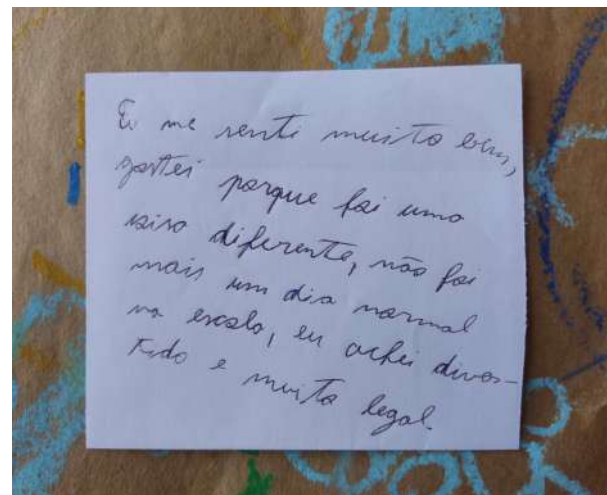 Eu me senti muito bem,
gostei porque foi uma
coisa diferente, não foi
mais um dia normal
na escola, eu achei diver-
tido e muito legal.